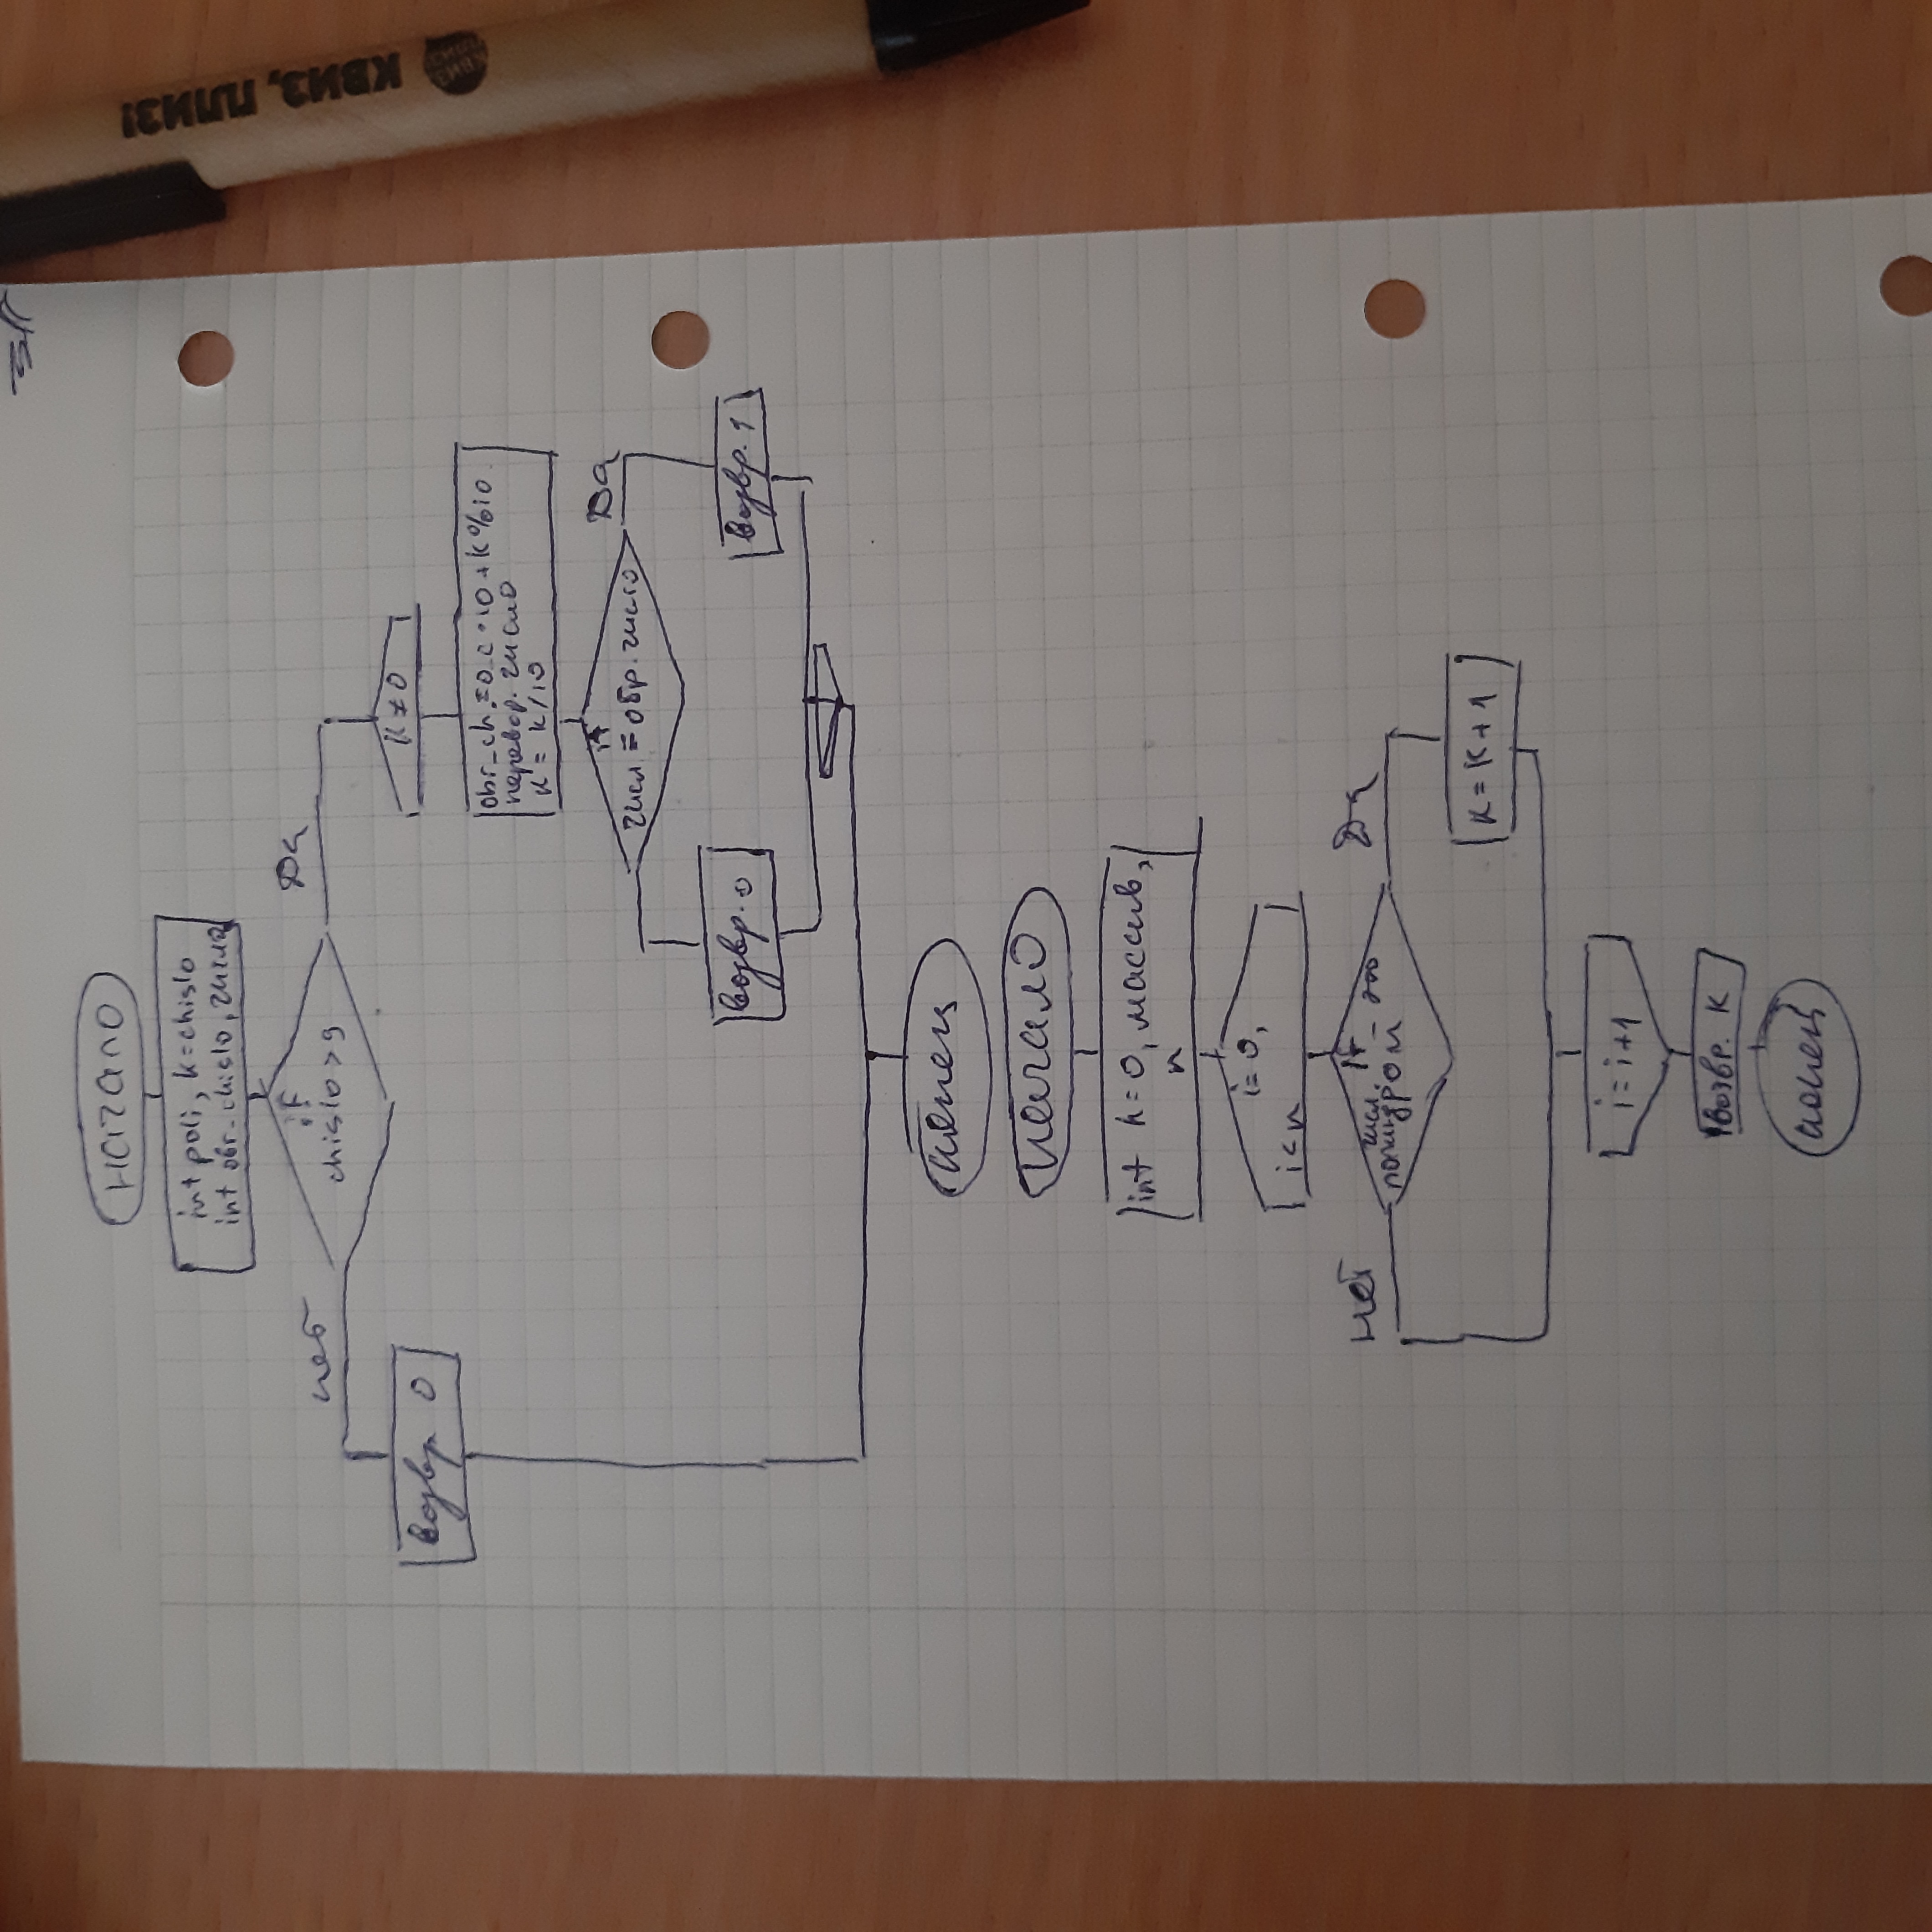 начало
int poli, k=chislo
int obr_chislo, число
if
chislo > 9
нет
Да
возвр 0
K ≠ 0
obr_ch.=o_c*10+K%10
перевор. число
K = K/10
if
числ = обр. число
Да
возвр. 0
возвр. 1
конец
начало
int k=0, массив,
n
i=0,
i<n
if
числ.
полиндром
нет
Да
K=K+1
i=i+1
возвр. K
конец
КВИЗ, ПЛИЗ!